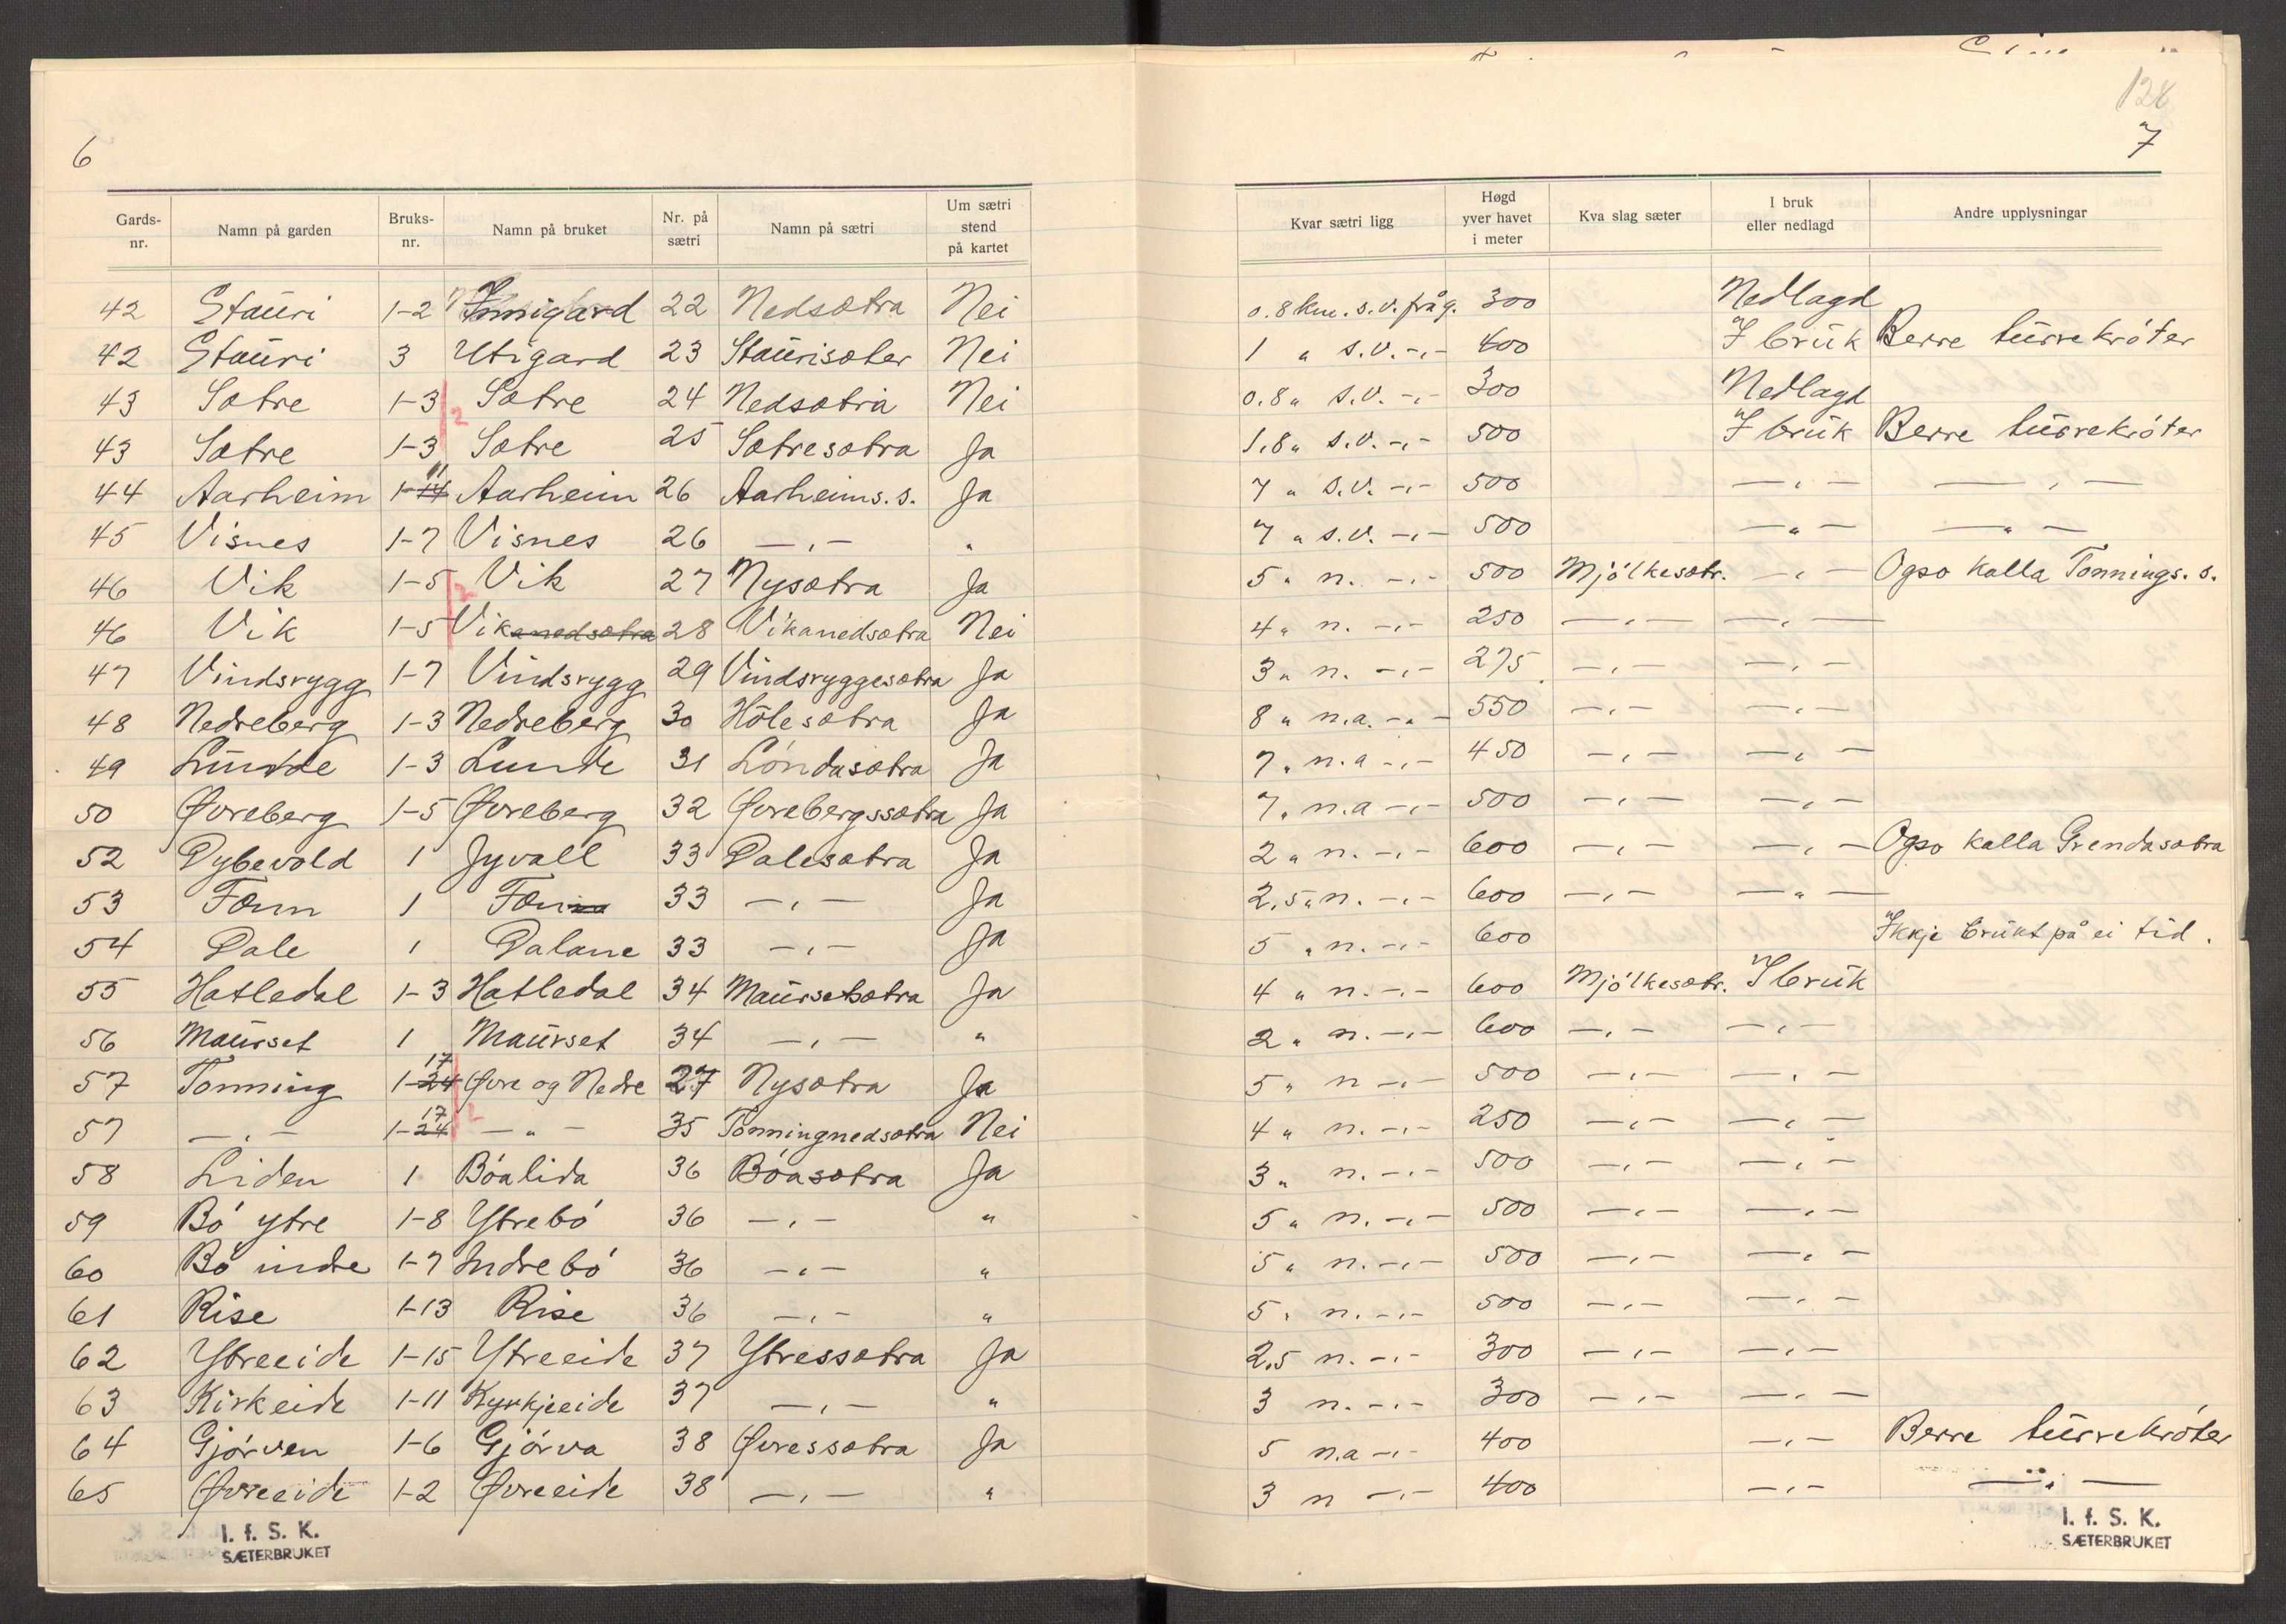 6
Gards-nr. Namn på garden Bruks-nr. Namn på bruket Nr. på sætri Namn på sætri Um sætri stend på kartet
42 Stauri 1-2 Innigard 22 Nedsætra Nei
42 Stauri 3 Utigard 23 Staurisæter Nei
43 Sætre 1-3 Sætre 24 Nedsætra Nei
2
43 Sætre 1-3 Sætre 25 Sætresætra Ja
44 Aarheim 1-14 11 Aarheim 26 Aarheims.s. Ja
45 Visnes 1-7 Visnes 26 —„— „
46 Vik 1-5 Vik 27 Nysætra Ja
2
46 Vik 1-5 Vikanedsætra 28 Vikanedsætra Nei
47 Vindsrygg 1-7 Vindsrygg 29 Vindsryggesætra Ja
48 Nedreberg 1-3 Nedreberg 30 Hólesætra Ja
49 Lunde 1-3 Lunde 31 Lóndasætra Ja
50 Øvreberg 1-5 Øvreberg 32 Øvrebergssætra Ja
52 Dybevold 1 Jyvall 33 Dalesætra Ja
53 Fonn 1 Fonn 33 —„— Ja
54 Dale 1 Dalane 33 —„— Ja
55 Hatledal 1-3 Hatledal 34 Maursetsætra Ja
56 Maurset 1 Maurset 34 —„— „
57 Tonning 1-24 17 Øvre og Nedre 27 Nysætra Ja
2
57 —„— 1-24 17 —„— 35 Tonningnedsætra Nei
58 Liden 1 Bóalida 36 Bóasætra Ja
59 Bó ytre 1-8 Ytrebó 36 —„— „
60 Bó indre 1-7 Indrebó 36 —„— „
61 Rise 1-13 Rise 36 —„— „
62 Ytreeide 1-15 Ytreeide 37 Ytressætra Ja
63 Kirkeide 1-11 Kyrkjeeide 37 —„— „
64 Gjórven 1-6 Gjórva 38 Øvressætra Ja
65 Øvreeide 1-2 Øvreeide 38 —„— „
I. f. S. K.
SÆTERBRUKET
128
7
Kvar sætri ligg Høgd yver havet i meter Kva slag sæter I bruk eller nedlagd Andre upplysningar
0.8 km. s.v. frå g. 300 Nedlagd
1 „ s.v. -„- 400 I bruk Berre turrekróter
0.8 „ s.v. -„- 300 Nedlagd
1.8 „ s.v. -„- 500 I bruk Berre turrekróter
7 „ s.v. -„- 500 —„— —„—
7 „ s.v. -„- 500 —„— —„—
5 „ n. -„- 500 Mjólkesætr. —„— Ogso kalla Tonnings.s.
4 „ n. -„- 250 —„— —„—
3 „ n. -„- 275 —„— —„—
8 „ n.a. -„- 550 —„— —„—
7 „ n.a -„- 450 —„— —„—
7 „ n.a -„- 500 —„— —„—
2 „ n. -„- 600 —„— —„— Ogso kalla Grendasætra
2,5 „ n. -„- 600 —„— —„—
5 „ n. -„- 600 Ikkje brukt på ei tid.
4 „ n. -„- 600 Mjólkesætr. I bruk
2 „ n. -„- 600 —„— —„—
5 „ n -„- 500 —„— —„—
4 „ n. -„- 250 —„— —„—
3 „ n. -„- 500 —„— —„—
5 „ n. -„- 500 —„— —„—
5 „ n. -„- 500 —„— —„—
5 „ n. -„- 500 —„— —„—
2.5 n. -„- 300 —„— —„—
3 n. -„- 300 —„— —„—
5 n.a -„- 400 —„— Berre turrekróter
3 n -„- 400 —„— —„—
I. f. S. K.
SÆTERBRUKET